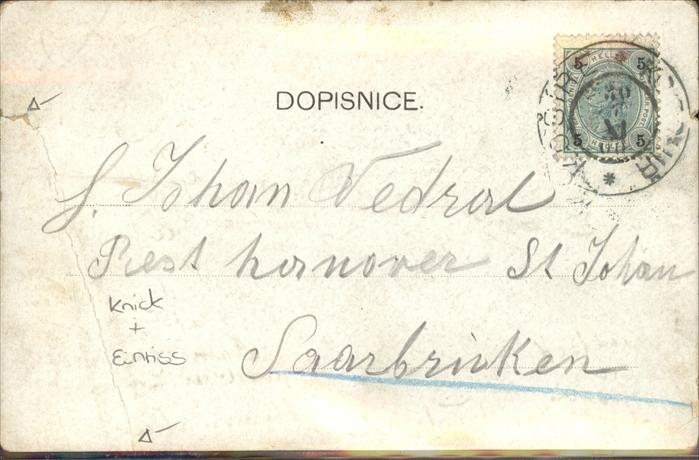 DOPISNICE.
5 HELLER 5
5 5
Johan Vedral
Rest hanover St Johan
Knick
+
Einriss
Saarbrüken